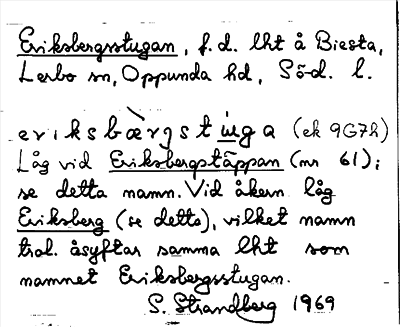 Eriksbergsstugan, f.d. lht å Biesta,
Lerbo sn, Oppunda hd, Söd. l.
eriksbæ̀rjstuga (ek 9G7h)
Låg vid Eriksbergstäppan (nr 61);
se detta namn. Vid åkern låg
Eriksberg (se detta), vilket namn
trol. åsyftar samma lht som
namnet Eriksbergsstugan.
S. Strandberg 1969